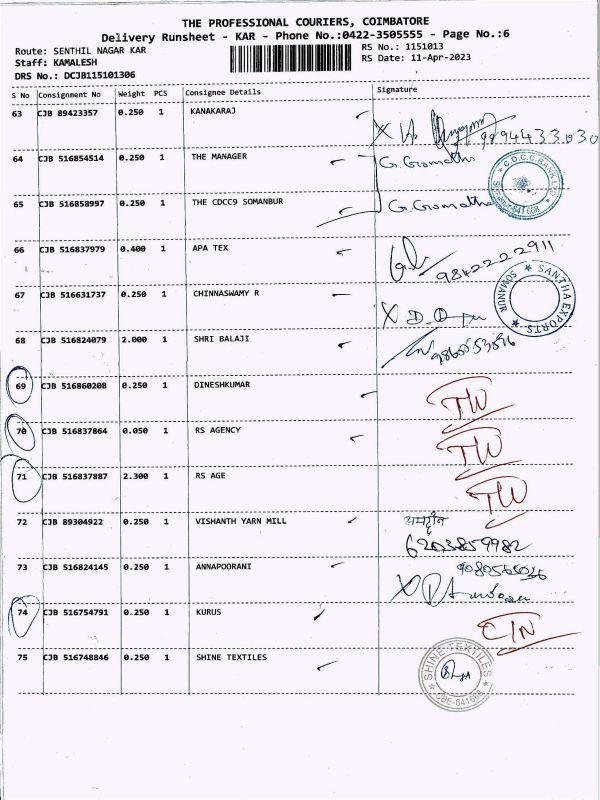 THE PROFESSIONAL COURIERS, COIMBATORE
Delivery Runsheet - KAR - Phone No.:0422-3505555 - Page No.:6
Route: SENTHIL NAGAR KAR
RS No.: 1151013
Staff: KAMALESH
RS Date: 11-Apr-2023
DRS No.: DCJB115101306
S No Consignment No Weight PCS Consignee Details Signature
63 CJB 89423357 0.250 1 KANAKARAJ
9894433030
64 CJB 516854514 0.250 1 THE MANAGER
65 CJB 516858997 0.250 1 THE CDCC9 SOMANBUR
66 CJB 516837979 0.400 1 APA TEX
9842222911
67 CJB 516631737 0.250 1 CHINNASWAMY R
SANTHA EXPORTS ★ SOMANUR ★
68 CJB 516824079 2.000 1 SHRI BALAJI
69 CJB 516860208 0.250 1 DINESHKUMAR TW
70 CJB 516837864 0.050 1 RS AGENCY TW
71 CJB 516837887 2.300 1 RS AGE TW
72 CJB 89304922 0.250 1 VISHANTH YARN MILL
6203859982
73 CJB 516824145 0.250 1 ANNAPOORANI
74 CJB 516754791 0.250 1 KURUS CIN
75 CJB 516748846 0.250 1 SHINE TEXTILES
★ SHINE TEXTILES ★ CBE-641668